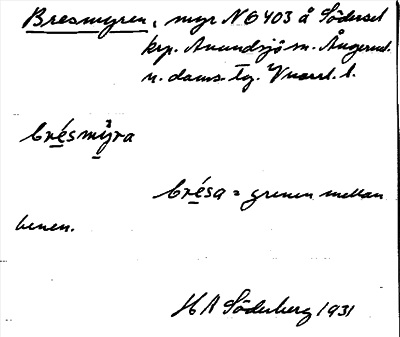 Bresmyren, myr N 6403 å Södersel
krp. Anundsjö sn. Ångerml.
n. doms. tg. Vnorrl. l.
brésmyra
brésa = grenen mellan
benen.
H A Söderberg 1931